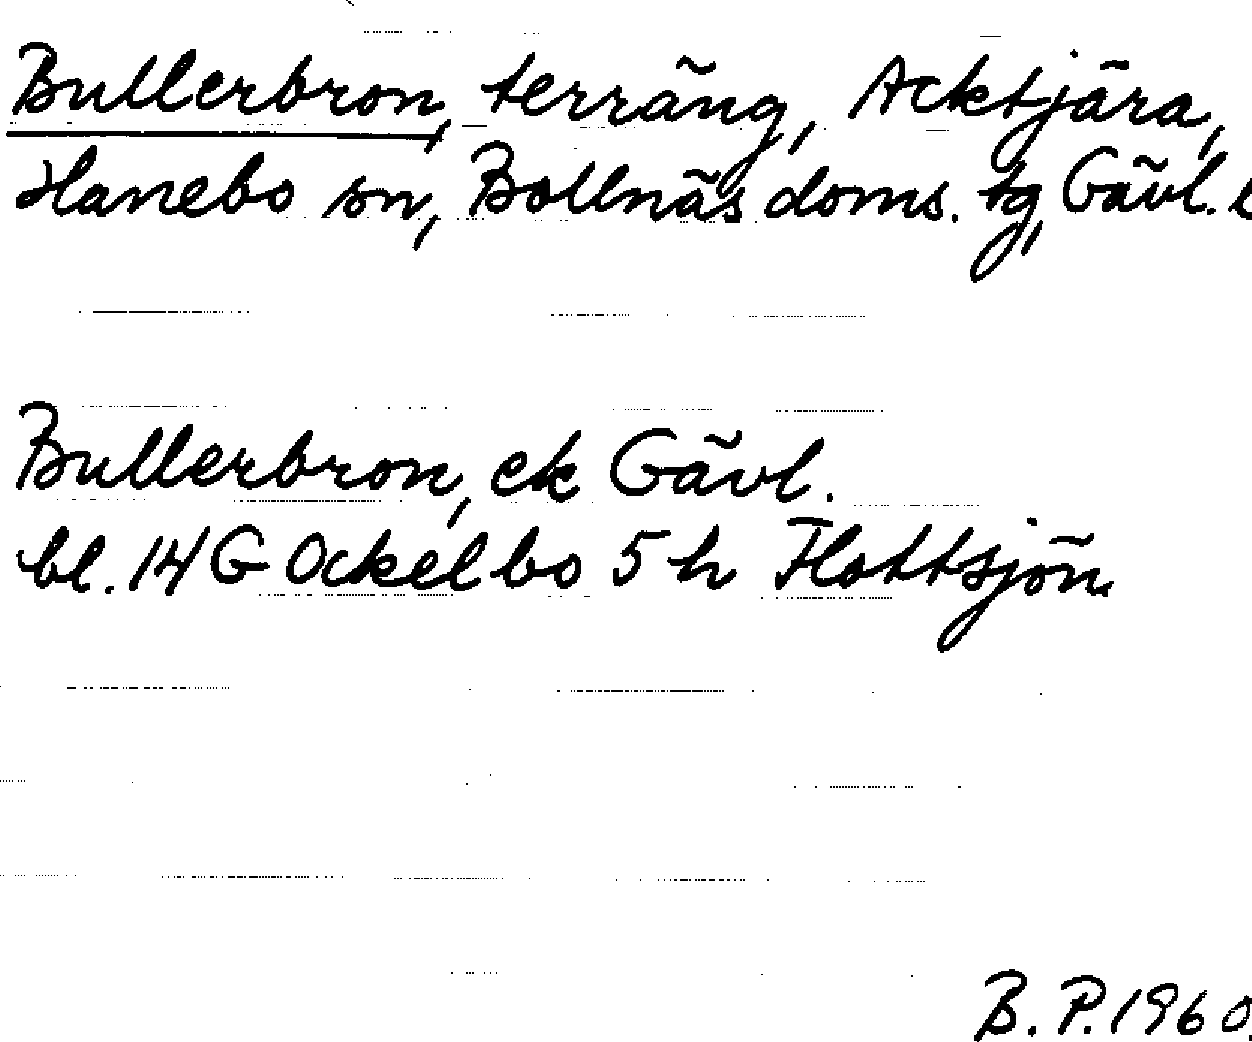 Bullerbron, terräng, Acktjära,
Hanebo sn, Bollnäs doms. tg, Gävl. l
Bullerbron, ek Gävl.
bl. 14 G Ockelbo 5 h Flottsjön
B. P. 1960.